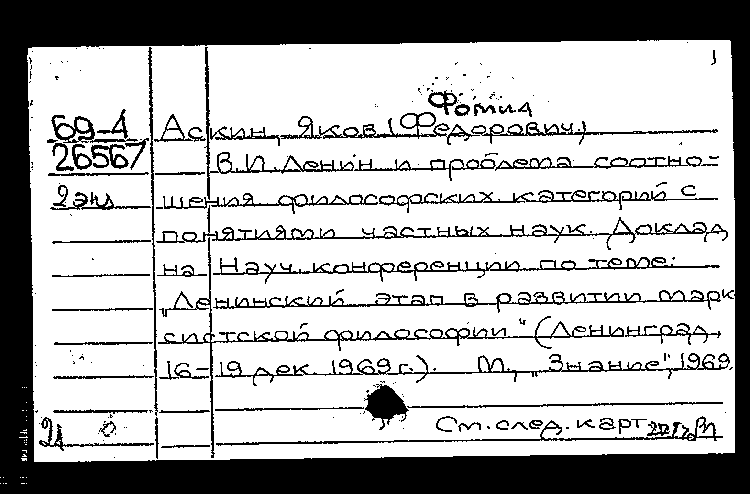 Фомич
69-4 Аскин, Яков (Федорович)
26567 В.И.Ленин и проблема соотно-
2 экз шения философских категорий с
понятиями частных наук. Доклад
на Науч. конференции по теме:
„Ленинский этап в развитии марк
систской философии" (Ленинград,
16-19 дек. 1969 г.). М., „Знание", 1969
См. след. карт